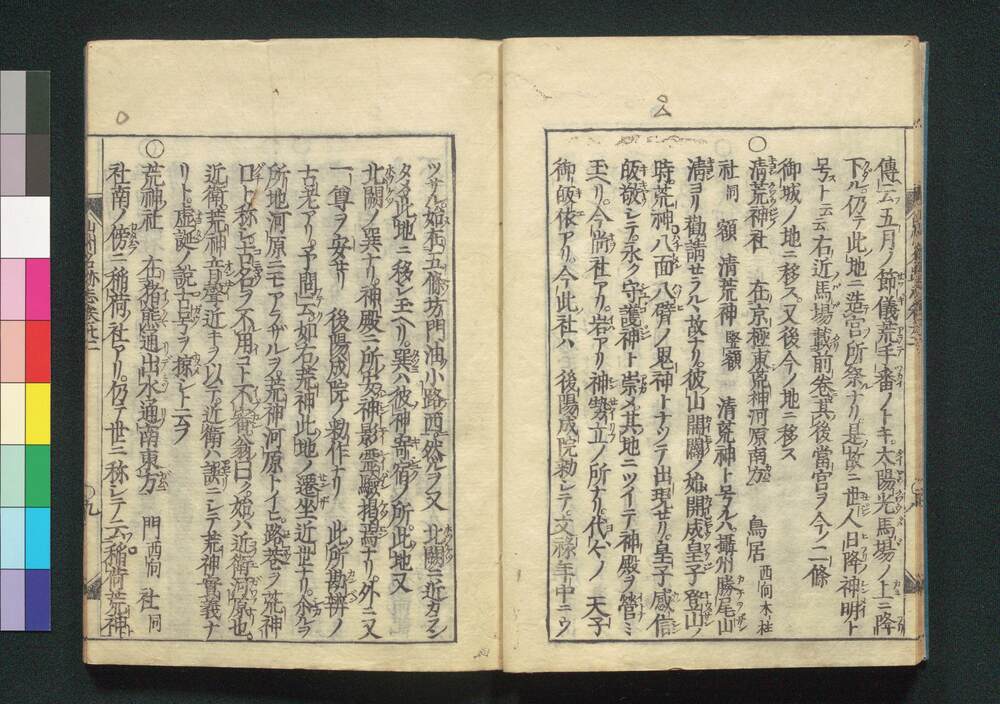 傳云五月ノ節儀荒手番ノトキ太陽光馬場ノ上ニ降
下ル仍テ此地ニ造宮ノ所祭ナリ是故ニ世人日降神明ト
号スト云云右近馬場載前卷其後當宮ヲ今ノ二條
御城ノ地ニ移ス又後今ノ地ニ移ス
○清荒神社 在京極東荒神河原南方 鳥居西向木柱
社同 額 清荒神竪額 清荒神ト号ルハ攝州勝尾山
清ヨリ勸請セラルヽ故ナリ彼山開闢ノ始開成皇子登山ノ
時荒神八面八臂ノ鬼神トナツテ出現セリ皇子感信
皈敬シテ永ク守護神ト崇メ其地ニツイテ神殿ヲ營ミ
玉ヘリ今尚社アリ岩アリ神勢立ノ所ナリ代々ノ 天子
御皈依アリ今此社ハ 後陽成院勅シテ文祿年中ニウ
ツサル始在五條坊門油小路西然ルヲ又 北闕ニ近カラシ
タメ此地ニ移シ玉ヘリ巽ハ彼神寄宿ノ所此地又
北闕ノ巽ナリ神殿ニ所安神影靈驗掲焉ナリ外ニ又
一尊ヲ安セリ 後陽成院ノ勅作ナリ 此所勘辨ノ
古老アリ予問云如右荒神此地ノ遷坐近世ナリ余ルヲ
所地河原ニモアラザルヲ荒神河原トイヒ路巷ヲ荒神
口ト称シ口名ヲ不用コト不審翁曰ク始ハ近衛河原也
近衛荒神音聲近キヲ以テ近衛ハ誤ニシテ荒神實義ナ
リト虚誕ノ説古号ヲ掠シト云フ
○荒神社 在猪熊通出水通南東方 門西向 社同
社南ノ傍ニ稲荷ノ社アリ仍テ世ニ称シテ云稲荷荒神
九